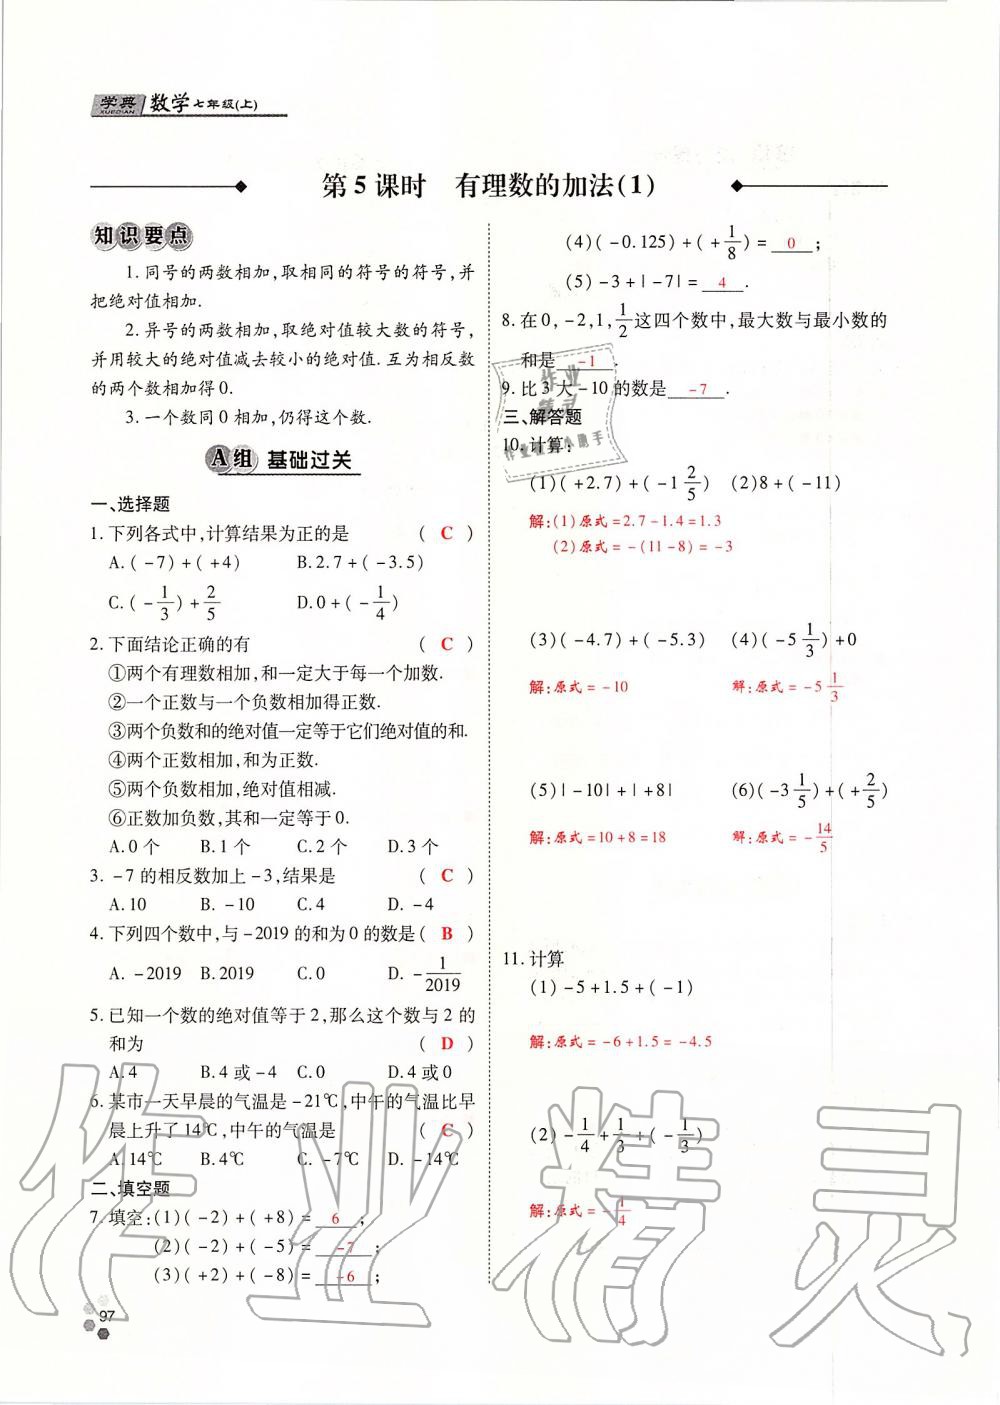 学典 XUEDIAN 数学七年级(上)
第5课时 有理数的加法(1)
知识要点
1.同号的两数相加,取相同的符号的符号,并
把绝对值相加.
2.异号的两数相加,取绝对值较大数的符号,
并用较大的绝对值减去较小的绝对值.互为相反数
的两个数相加得0.
3.一个数同0相加,仍得这个数.
A组 基础过关
一、选择题
1.下列各式中,计算结果为正的是 ( C )
A.(-7)+(+4) B.2.7+(-3.5)
C.(-1/3)+2/5 D.0+(-1/4)
2.下面结论正确的有 ( C )
①两个有理数相加,和一定大于每一个加数.
②一个正数与一个负数相加得正数.
③两个负数和的绝对值一定等于它们绝对值的和.
④两个正数相加,和为正数.
⑤两个负数相加,绝对值相减.
⑥正数加负数,其和一定等于0.
A.0个 B.1个 C.2个 D.3个
3.-7的相反数加上-3,结果是 ( C )
A.10 B.-10 C.4 D.-4
4.下列四个数中,与-2019的和为0的数是( B )
A.-2019 B.2019 C.0 D.-1/2019
5.已知一个数的绝对值等于2,那么这个数与2的
和为 ( D )
A.4 B.4或-4 C.0 D.4或0
6.某市一天早晨的气温是-21℃,中午的气温比早
晨上升了14℃,中午的气温是 ( C )
A.14℃ B.4℃ C.-7℃ D.-14℃
二、填空题
7.填空:(1)(-2)+(+8)=6;
(2)(-2)+(-5)=-7;
(3)(+2)+(-8)=-6;
97
(4)(-0.125)+(+1/8)=0;
(5)-3+|-7|=4.
8.在0,-2,1,1/2这四个数中,最大数与最小数的
和是-1.
9.比3大-10的数是-7.
三、解答题
10.计算:
(1)(+2.7)+(-1 2/5) (2)8+(-11)
解:(1)原式=2.7-1.4=1.3
(2)原式=-(11-8)=-3
(3)(-4.7)+(-5.3) (4)(-5 1/3)+0
解:原式=-10 解:原式=-5 1/3
(5)|-10|+|+8| (6)(-3 1/5)+(+2/5)
解:原式=10+8=18 解:原式=-14/5
11.计算
(1)-5+1.5+(-1)
解:原式=-6+1.5=-4.5
(2)-1/4+1/3+(-1/3)
解:原式=-1/4
作业精灵
作业精灵
作业精灵小助手